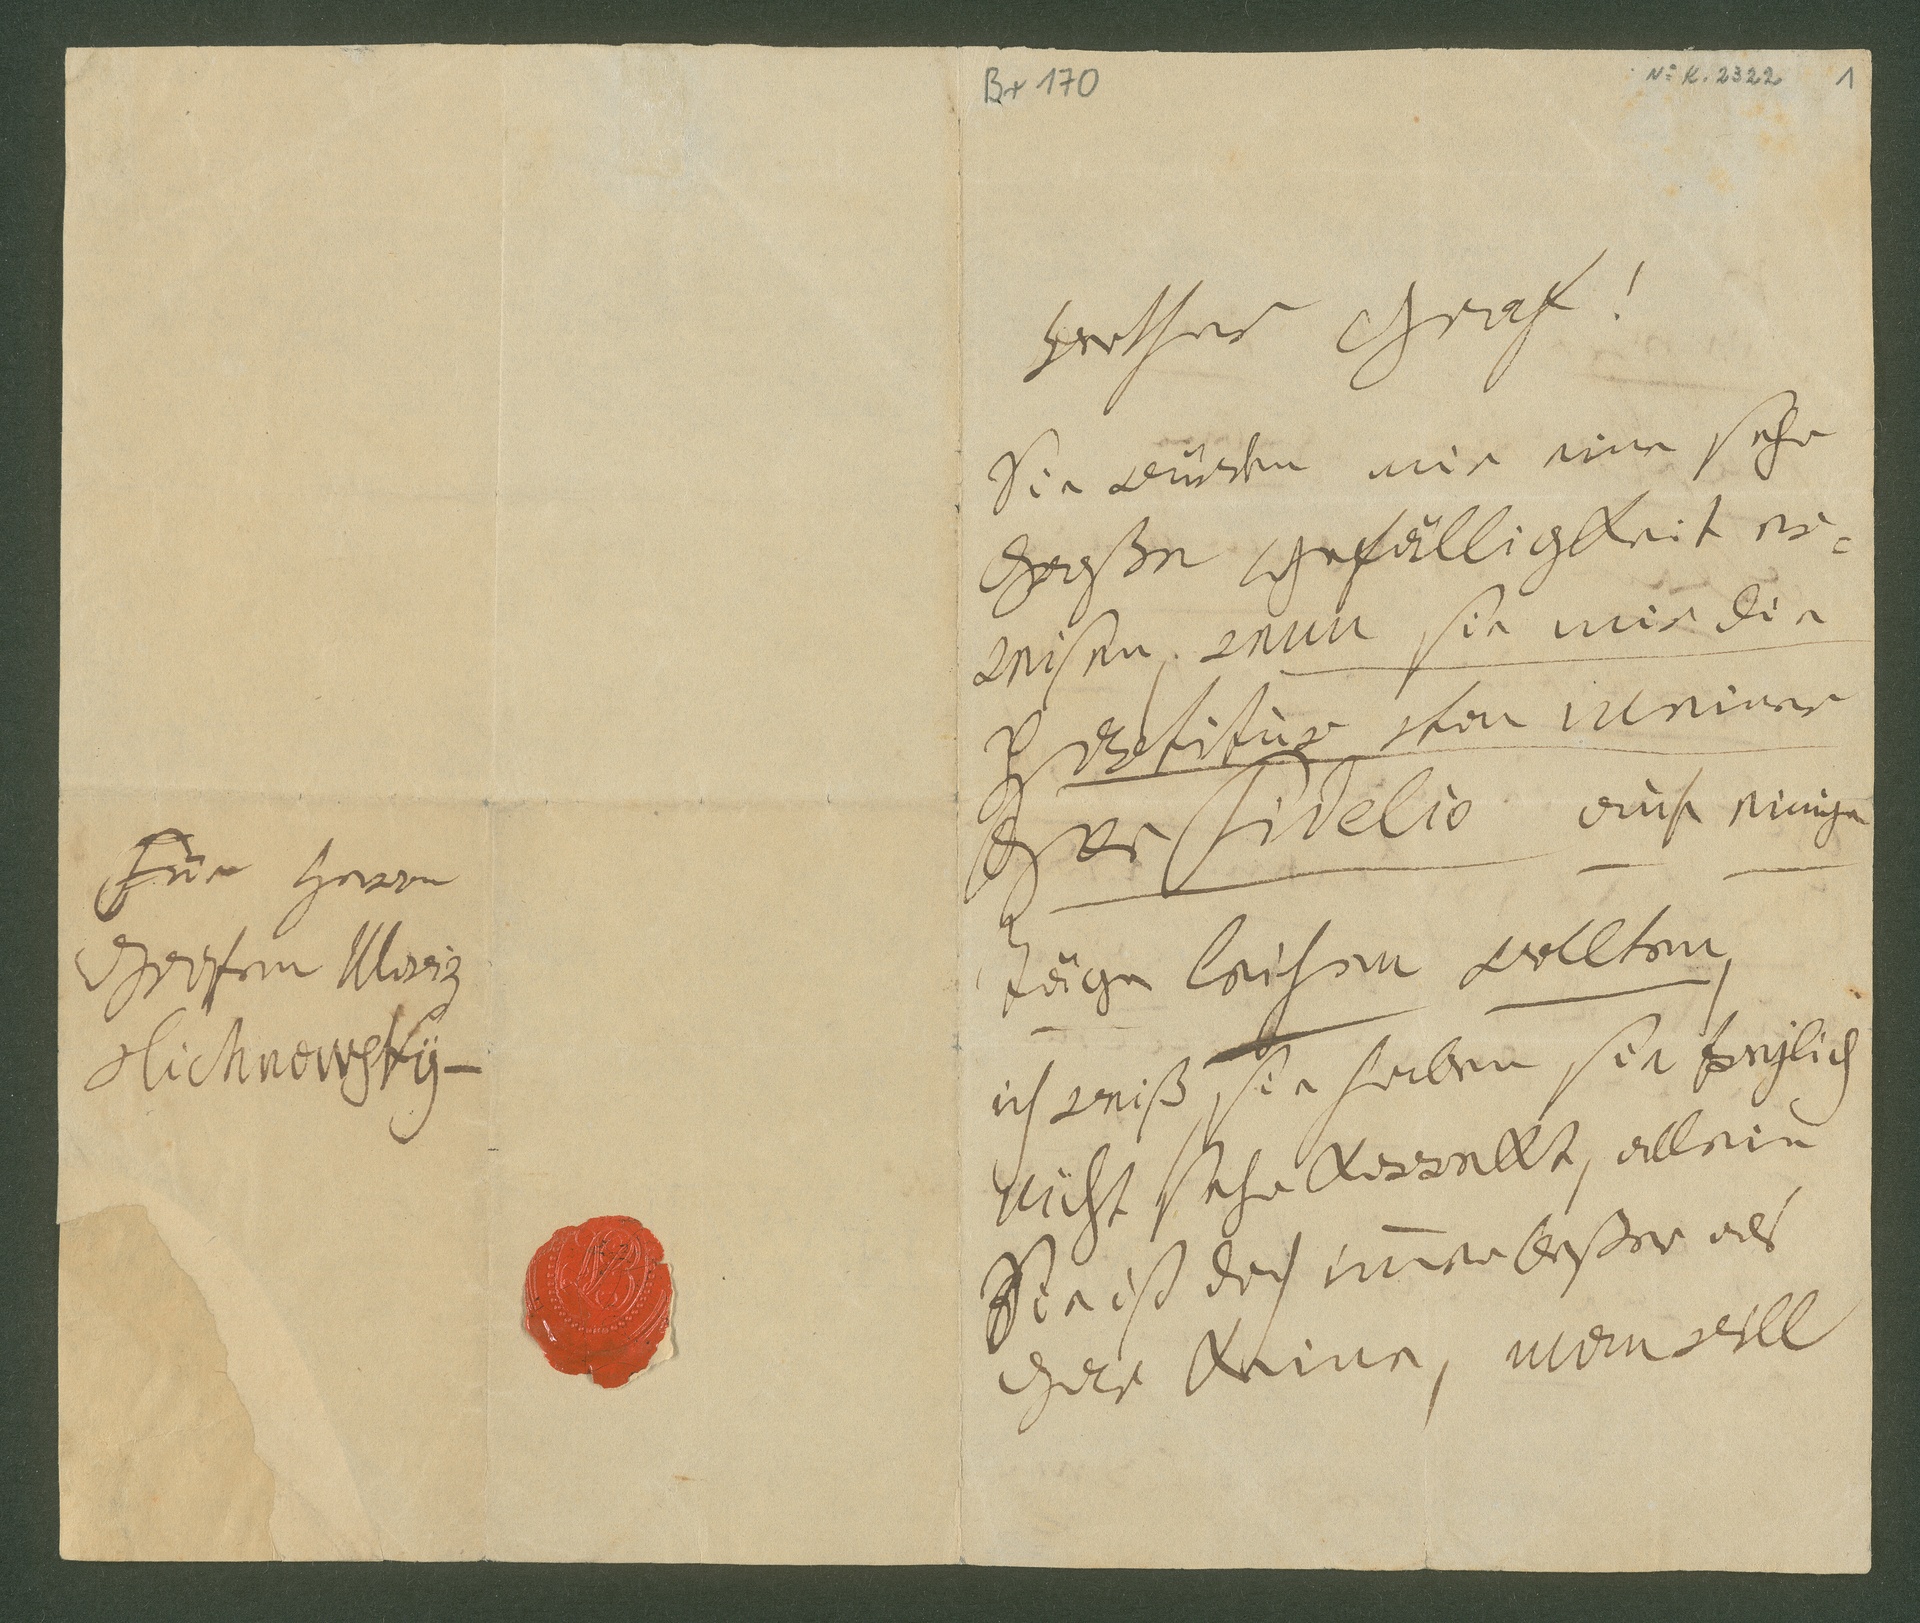 Für Herrn
Grafen Moriz
Lichnowsky –
Br 170
No K. 2322
1
werther Graf!
Sie würden mir eine sehr
Große Gefälligkeit er=
weisen, wenn sie mir die
Partitur von Meiner
Oper Fidelio auf einige
täge leihen wollten,
ich weiß sie haben sie freylich
nicht sehr korrekt, allein
Sie ist doch immer beßer als
Gar keine, man will